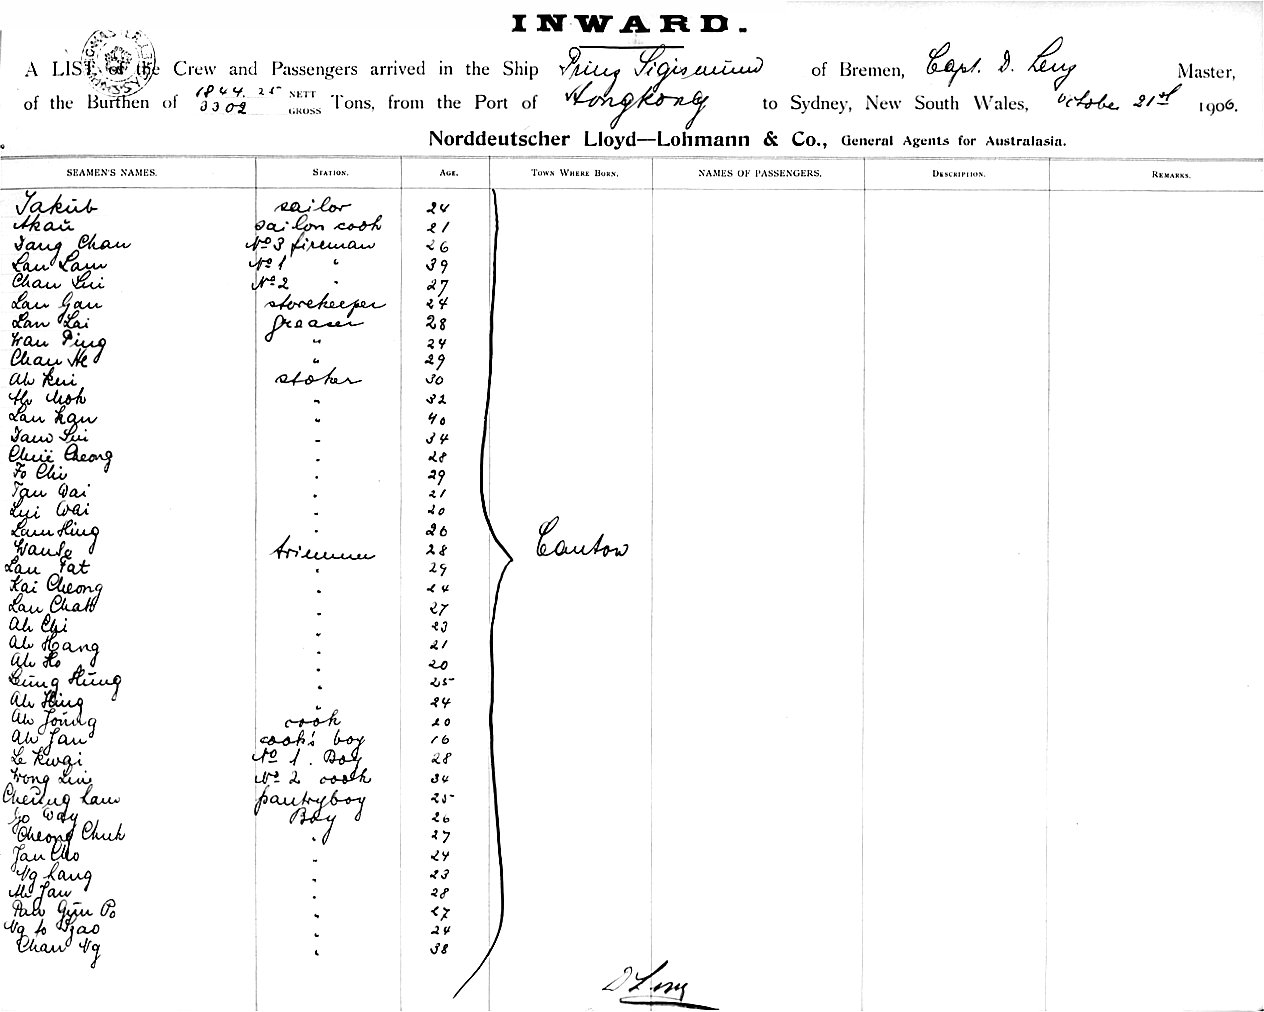 INWARD.
A LIST of the Crew and Passengers arrived in the Ship Prinz Sigismund of Bremen, Capt. D. Lenz Master,
of the Burthen of 1844.25 NETT 3302 GROSS Tons, from the Port of Hongkong to Sydney, New South Wales, October 21st 1906.
Norddeutscher Lloyd—Lohmann & Co., General Agents for Australasia.
SEAMEN'S NAMES. STATION. AGE. TOWN WHERE BORN. NAMES OF PASSENGERS. DESCRIPTION. REMARKS.
Jakub sailor 24
Akau sailon cook 21
Tang Chan No 3 fireman 26
Lau Lam No 1 " 39
Chau Lui No 2 " 27
Lau Gau storekeeper 24
Lau Lai greaser 28
Wau Ping " 24
Chau He " 29
Ah Kui stoker 30
Mok " 32
Lau Kau " 40
Tam Lui " 34
Chui Cheong " 28
Fo Chi " 29
Tau Wai " 21
Lui Wai " 20
Lam Hing " 26
trimmer 28 Canton
Lau Fat " 29
Kai Cheong " 24
Lau Chak " 27
Ah Chi " 23
Ah Hang " 21
Ah Ho " 20
Hung " 25
Ah Hing " 24
Ah Joung cook 20
Ah Jau cook's boy 16
Le Kwai No 1. Boy 28
Wong Lui No 2 cook 34
Cheung Lam pantryboy 25
Way Boy 26
Cheong Chuk " 27
Jau Cho " 24
Ng Kang " 23
Jau " 28
Po " 27
Ng 24
Chau Ng " 38
D Lenz